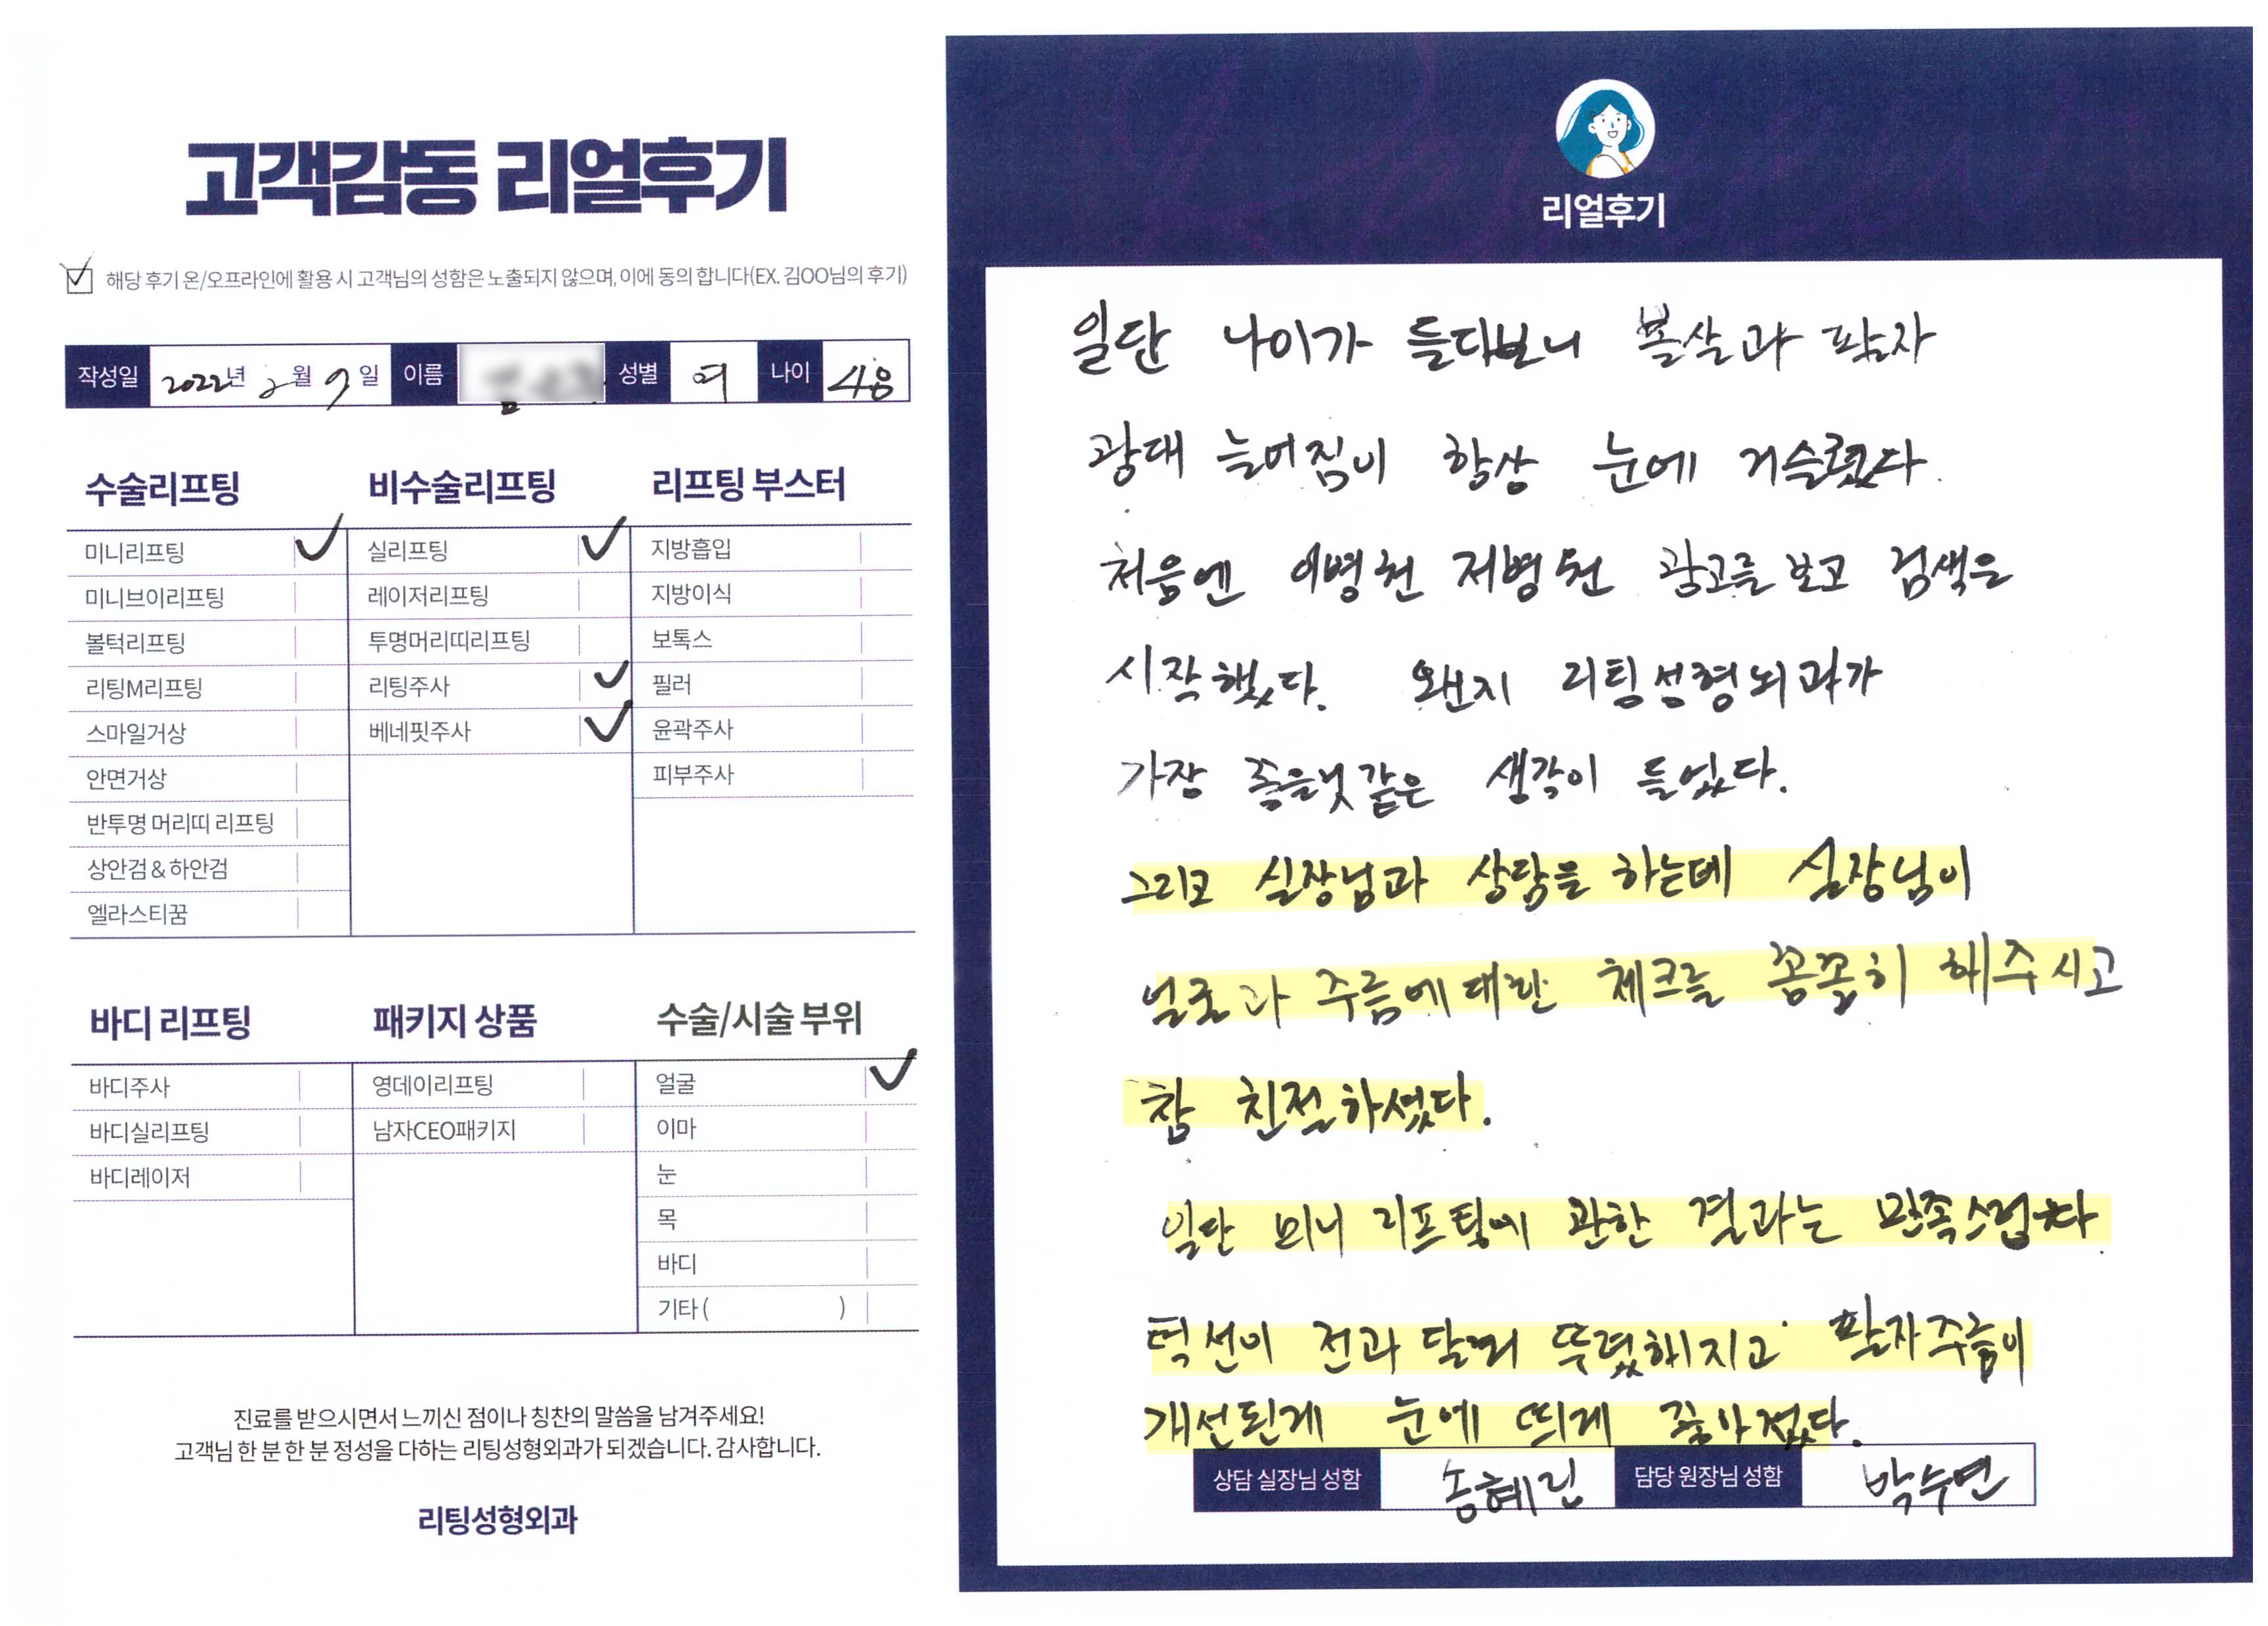 고객감동 리얼후기
해당 후기 온/오프라인에 활용 시 고객님의 성함은 노출되지 않으며, 이에 동의 합니다(EX. 김OO님의 후기)
작성일 2022년 2월 9일 이름 성별 여 나이 48
수술리프팅
미니리프팅
미니브이리프팅
볼턱리프팅
리팅M리프팅
스마일거상
안면거상
반투명 머리띠 리프팅
상안검 & 하안검
엘라스티꿈
비수술리프팅
실리프팅
레이저리프팅
투명머리띠리프팅
리팅주사
베네핏주사
리프팅 부스터
지방흡입
지방이식
보톡스
필러
윤곽주사
피부주사
바디 리프팅
바디주사
바디실리프팅
바디레이저
패키지 상품
영데이리프팅
남자CEO패키지
수술/시술 부위
얼굴
이마
눈
목
바디
기타 ( )
진료를 받으시면서 느끼신 점이나 칭찬의 말씀을 남겨주세요!
고객님 한 분 한 분 정성을 다하는 리팅성형외과가 되겠습니다. 감사합니다.
리팅성형외과
리얼후기
일단 나이가 들다보니 볼살과 팔자
광대 늘어짐이 항상 눈에 거슬렸다.
처음엔 이병원 저병원 광고를 보고 검색은
시작했다. 왠지 리팅성형뇌과가
가장 좋을것같은 생각이 들었다.
그리고 실장님과 상담을 하는데 실장님이
얼굴과 주름에 대한 체크를 꼼꼼히 해주시고
참 친절하셨다.
일단 미니 리프팅에 관한 결과는 만족스럽다.
턱선이 전과 달리 뚜렷해지고 팔자주름이
개선된게 눈에 띄게 좋아졌다.
상담 실장님 성함 송혜린 담당 원장님 성함 박수연